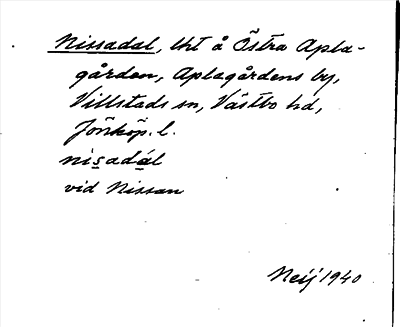 Nissadal, lht å Östra Apla-
gården, Aplagårdens by,
Villstads sn, Västbo hd,
Jönköp. l.
nisadál
vid Nissan
Neij 1940